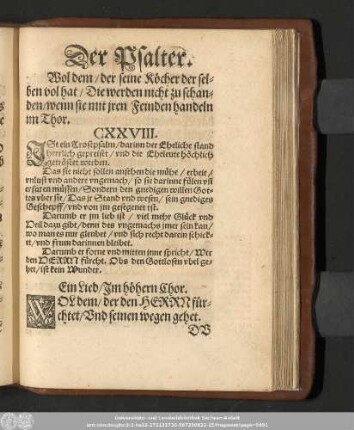 Der Psalter.
Wol dem / der seine Köcher der sel-
ben vol hat / Die werden nicht zu schan-
den / wenn sie mit jren Feinden handeln
im Thor.
CXXVIII.
ISt ein Trostpsalm / darinn der Eheliche stand
herrlich gepreiset / vnd die Eheleute höchlich
getröstet werden.
Das sie nicht sollen ansehen die mühe / erbeit /
vnlust vnd andere vngemach / so sie darinne fülen vn̄
erfaren müssen / Sondern den gnedigen willen Got-
tes vber sie / Das jr Stand vnd wesen / sein gnediges
Geschepff / vnd von jm gesegenet ist.
Darumb er jm lieb ist / viel mehr Glück vnd
Heil dazu gibt / denn des vngemachs jmer sein kan /
wo man es nur gleubet / vnd sich recht darein schick-
et / vnd frum darinnen bleibet.
Darumb er forne vnd mitten inne spricht / Wer
den HERRN fürcht. Obs den Gottlosen vbel ge-
het / ist kein Wunder.
Ein Lied / Im höhern Chor.
WOL dem / der den HERRN für-
chtet / Vnd seinen wegen gehet.
DV
Universitäts- und Landesbibliothek Sachsen-Anhalt